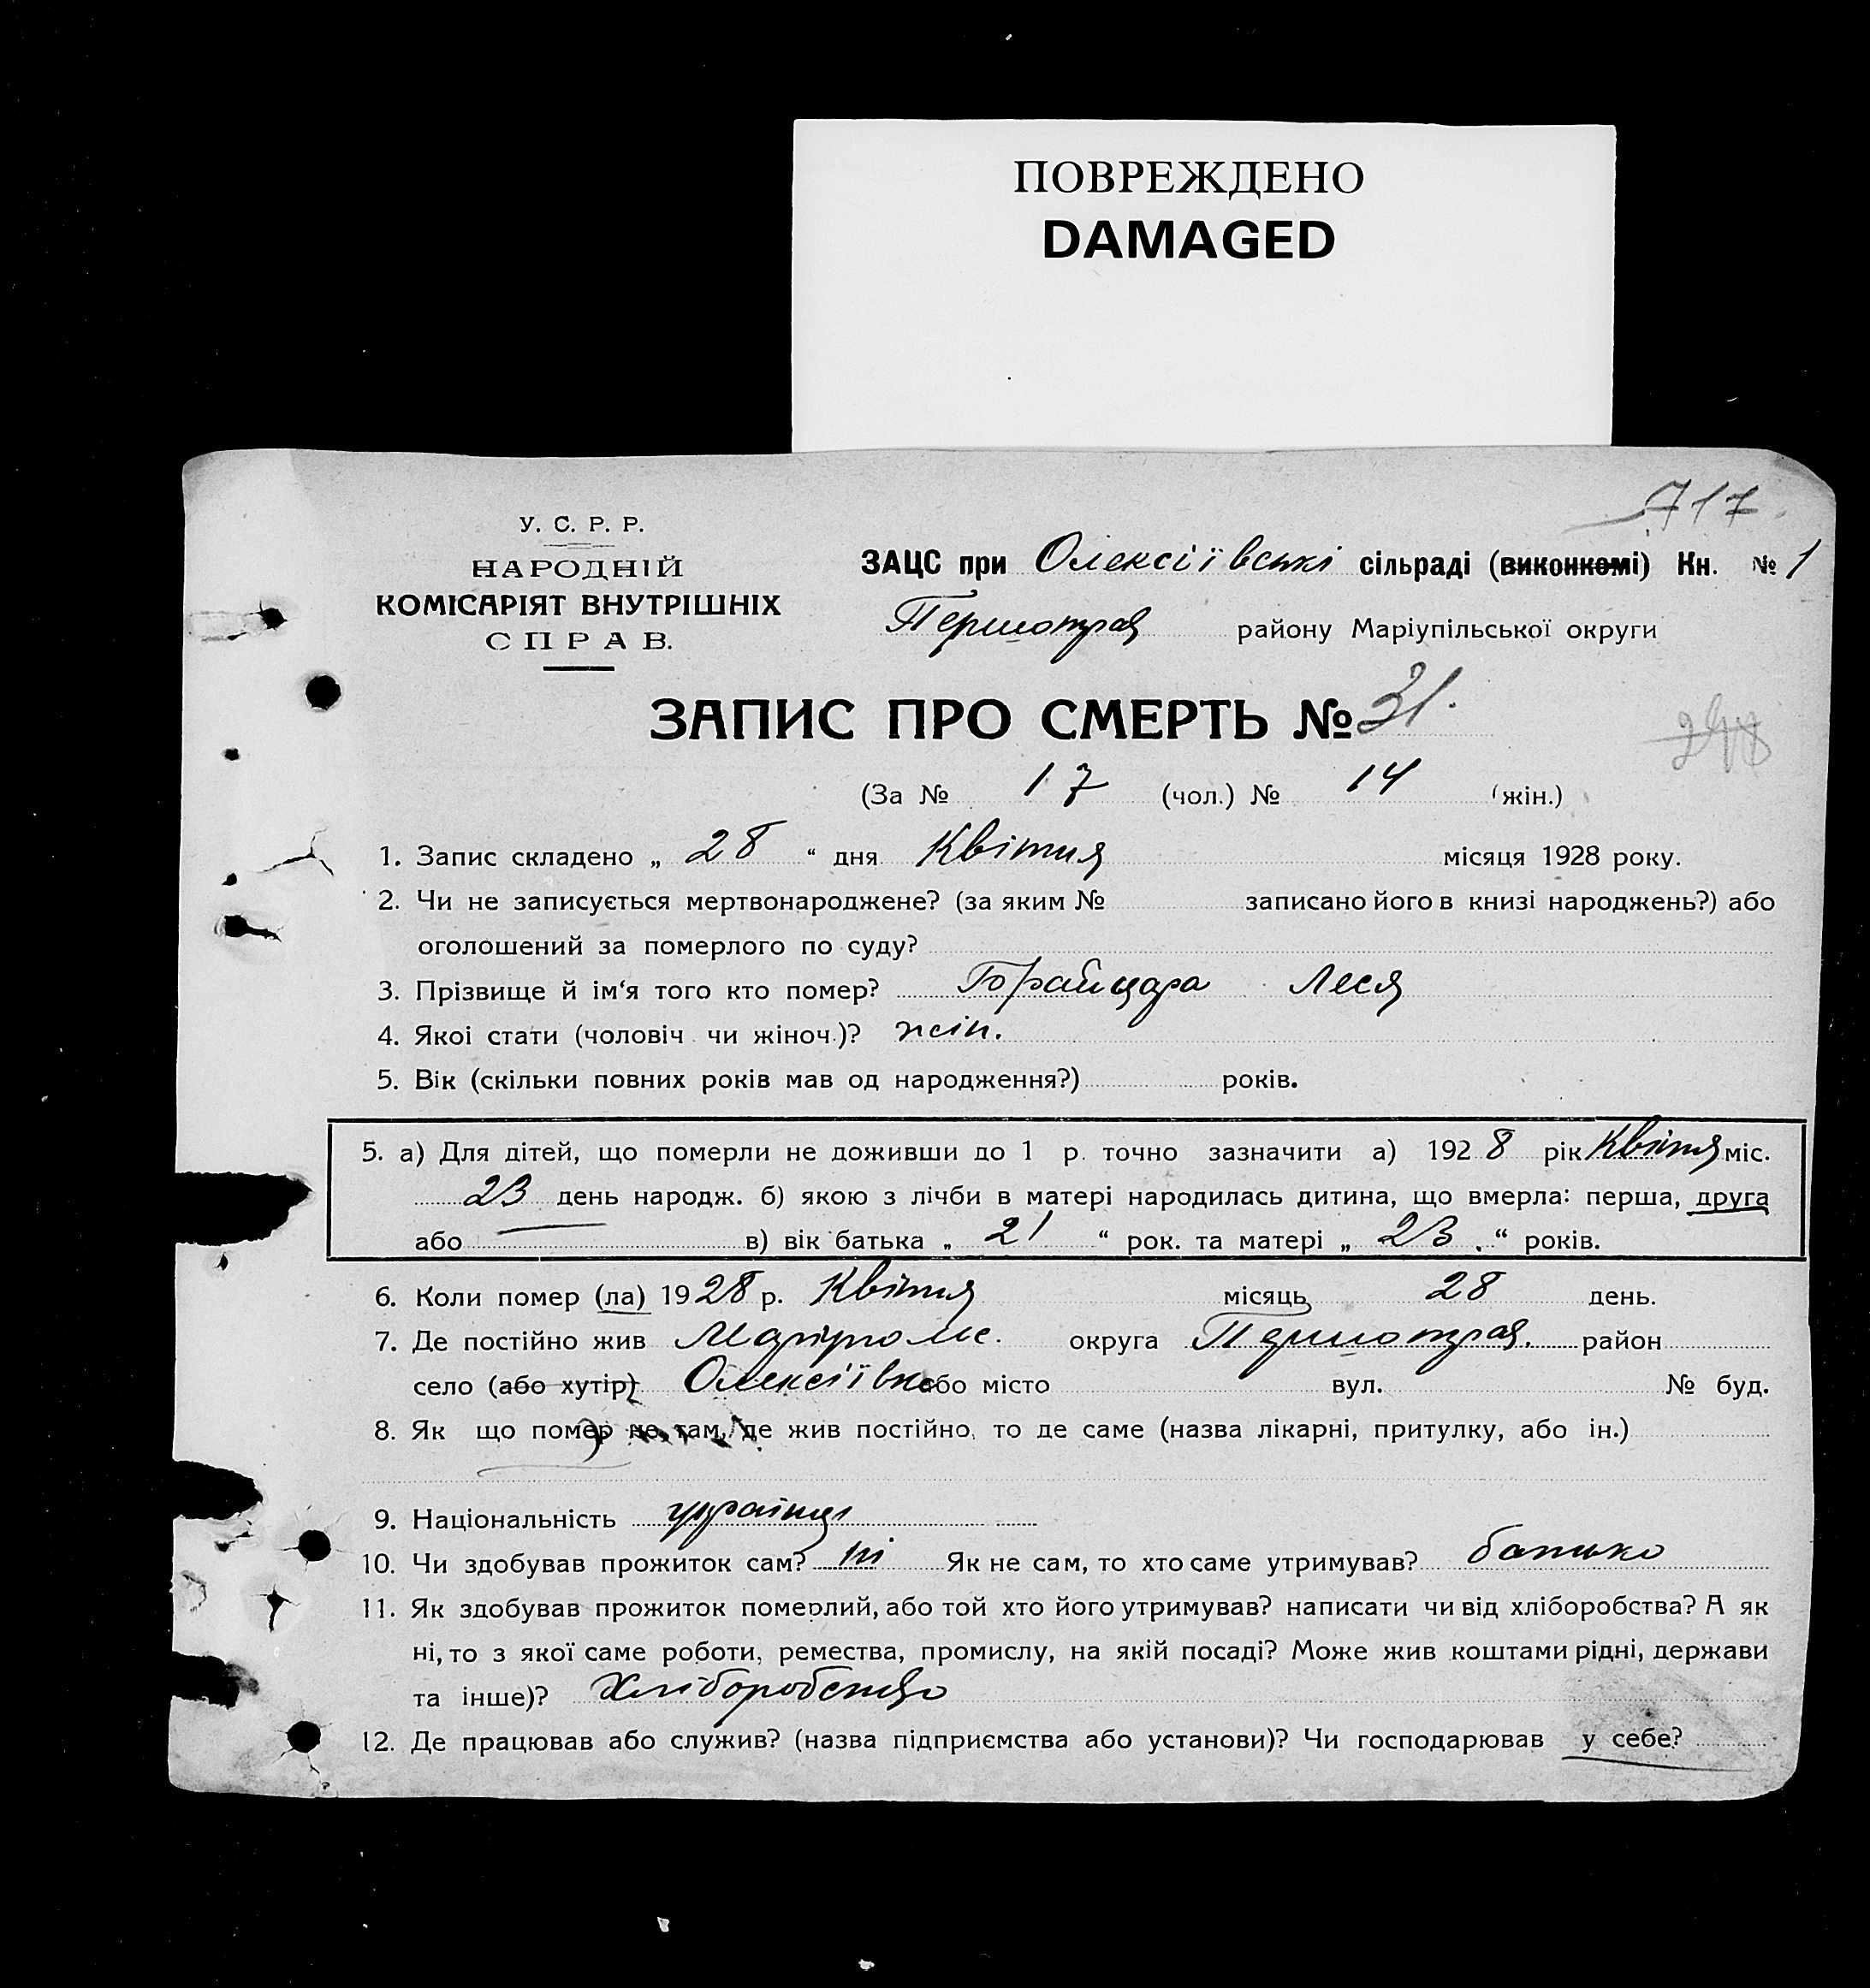 ПОВРЕЖДЕНО
DAMAGED
717
У. С. Р. Р.
НАРОДНІЙ
КОМІСАРІЯТ ВНУТРІШНІХ
СПРАВ.
ЗАЦС при Олексіївські сільраді (виконкомі) Кн. № 1
Першотрав району Маріупільської округи
ЗАПИС ПРО СМЕРТЬ № 31.
(За № 17 (чол.) № 14 (жін.)
1. Запис складено „ 28 “ дня Квітня місяця 1928 року.
2. Чи не записується мертвонароджене? (за яким № записано його в книзі народжень?) або
оголошений за померлого по суду?
3. Прізвище й ім‘я того кто помер? Леся
4. Якої стати (чоловіч. чи жіноч.)? жін.
5. Вік (скільки повних років мав од народження?) років.
5. а) Для дітей, що померли не доживши до 1 р. точно зазначити а) 1928 рік Квітня міс.
23 день народж. б) якою з лічби в матері народилась дитина, що вмерла: перша, друга
або — в) вік батька „ 21 “ рок. та матері „ 23 “ років.
6. Коли помер (ла) 1928 р. Квітня місяць 28 день.
7. Де постійно жив округа Першотрав. район
село (або хутір) Олексіївка або місто вул. № буд.
8. Як що помер не там, де жив постійно, то де саме (назва лікарні, притулку, або ін.)
9. Національність
10. Чи здобував прожиток сам? ні Як не сам, то хто саме утримував? батько
11. Як здобував прожиток померлий, або той хто його утримував? написати чи від хліборобства? А як
ні, то з якої саме роботи, ремества, промислу, на якій посаді? Може жив коштами рідні, держави
та інше)? Хліборобство
12. Де працював або служив? (назва підприємства або установи)? Чи господарював у себе?